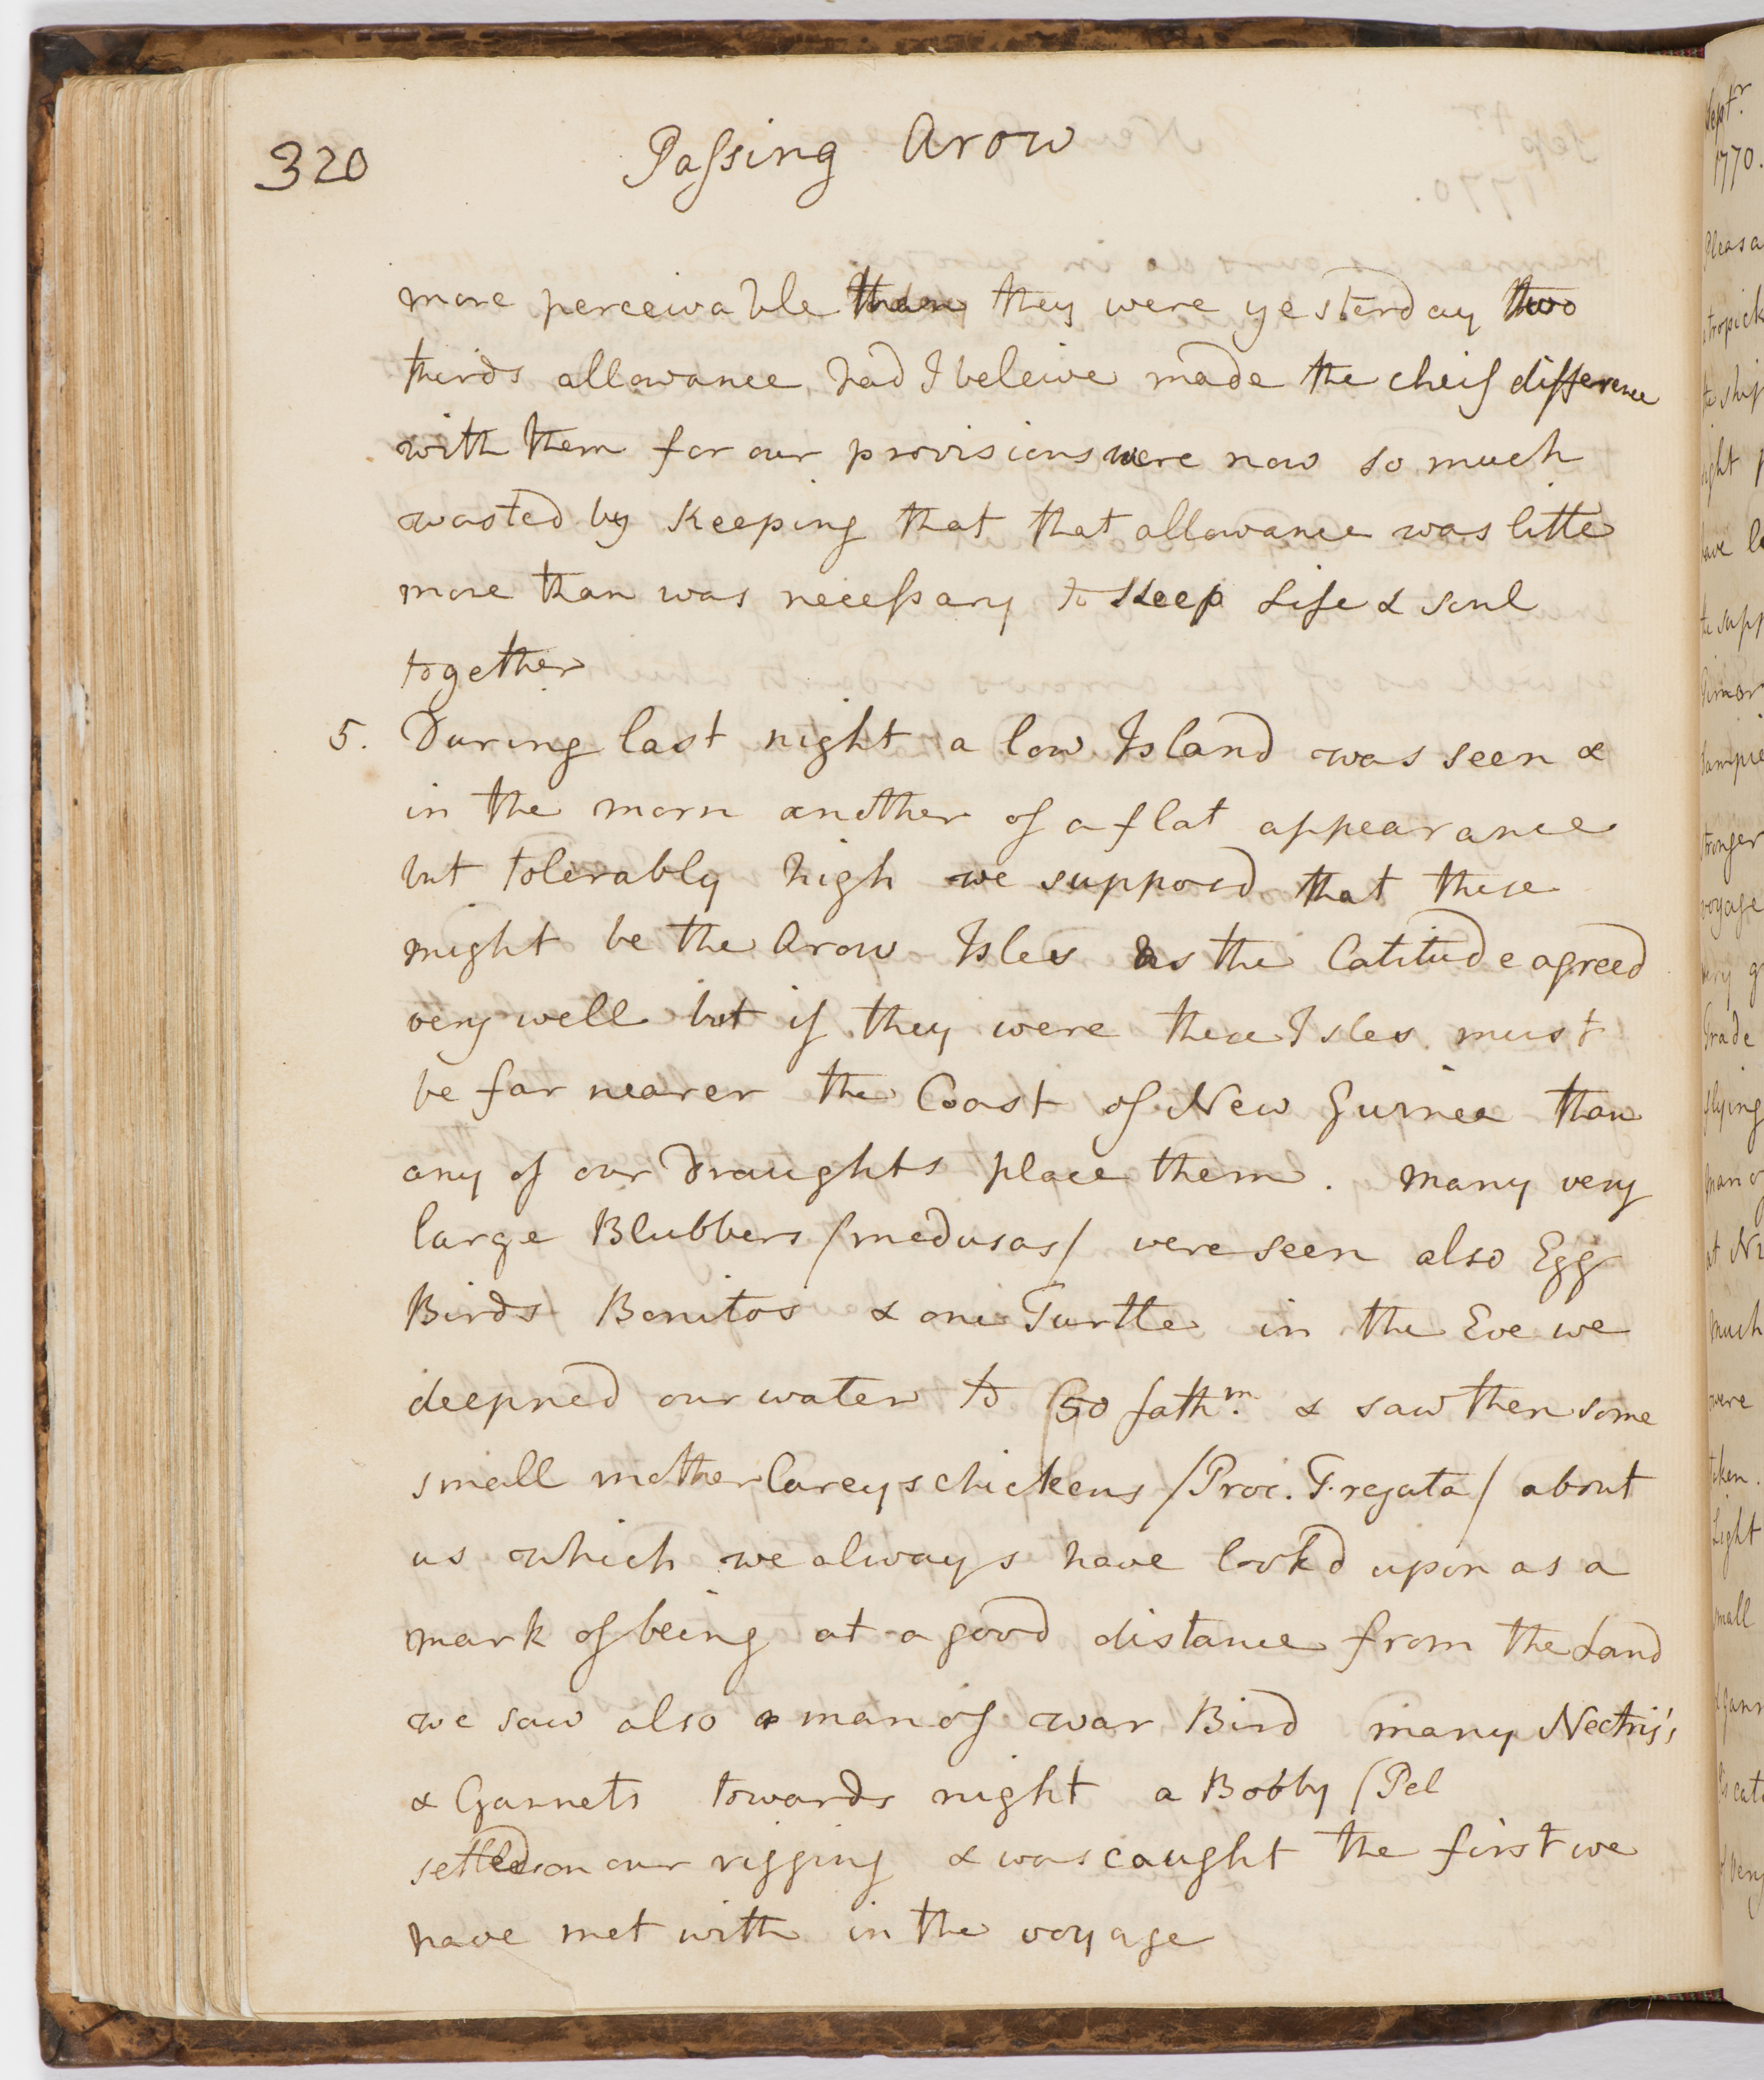 320
Passing Arow
more perceivable than they were yesterday two
thirds allowance had I beleive made the cheif difference
with them for our provisions were now so much
wasted by keeping that that allowance was litte
more than was necessary to keep Life & soul
together
5. During last night a low Island was seen &
in the morn another of a flat appearance
but tolerably high we supposd that these
might be the Arow Isles as the latitude agreed
very well but if they were these Isles must
be far nearer the Coast of New Guinea than
any of our Draughts place them. Many very
large Blubbers /medusas/ were seen also Egg
Birds Bonitos & one Turtle in the Eve we
deepned our water to 50 fathm. & saw then some
small mother Careys chickens /Proc. Fregata/ about
us which we always have lookd upon as a
mark of being at a good distance from the Land
we saw also a man of war Bird many Nectris's
& Gannets towards night a Bobby /Pel
settled on our rigging & was caught the first we
have met with in the voyage
Septr.
1770.